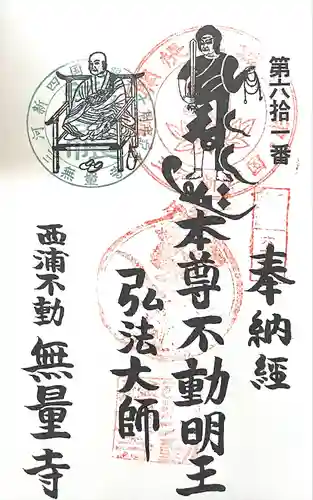 第六拾一番
奉納經
本尊不動明王
弘法大師
西浦不動
無量寺